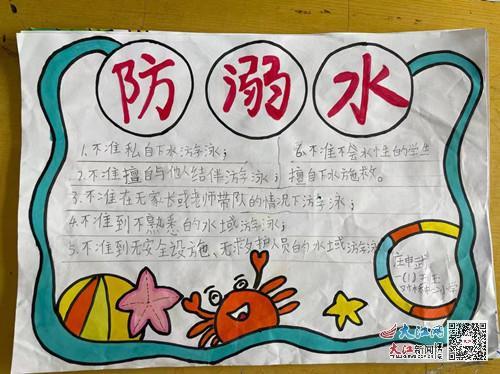 防溺水
1.不准私自下水游泳;
2.不准擅自与他人结伴游泳;
3.不准在无家长或老师带队的情况下游泳;
4.不准到不熟悉的水域游泳;
5.不准到无安全设施、无救护人员的水域游泳
6.不准不会水性的学生
擅自下水施救。
一(1)班
大江网
大江新闻